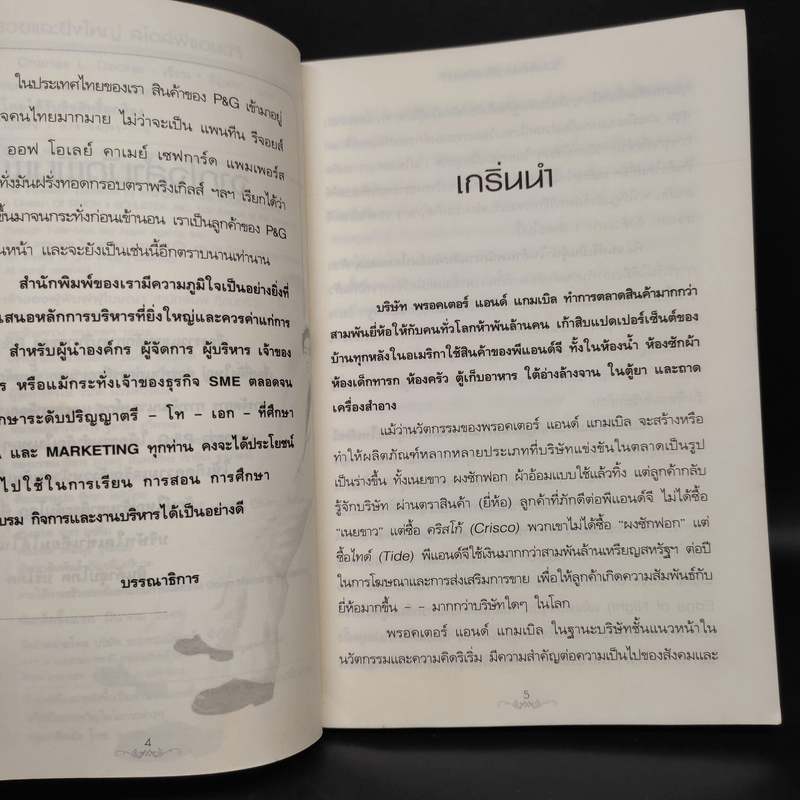 ในประเทศไทยของเรา สินค้าของ P&G เข้ามาอยู่
จคนไทยมากมาย ไม่ว่าจะเป็น แพนทีน รีจอยส์
ออฟ โอเลย์ คาเมย์ เซฟการ์ด แพมเพอร์ส
ทั่งมันฝรั่งทอดกรอบตราพริงเกิลส์ ฯลฯ เรียกได้ว่า
ขึ้นมาจนกระทั่งก่อนเข้านอน เราเป็นลูกค้าของ P&G
นหน้า และจะยังเป็นเช่นนี้อีกตราบนานเท่านาน
สำนักพิมพ์ของเรามีความภูมิใจเป็นอย่างยิ่งที่
เสนอหลักการบริหารที่ยิ่งใหญ่และควรค่าแก่การ
สำหรับผู้นำองค์กร ผู้จัดการ ผู้บริหาร เจ้าของ
ร หรือแม้กระทั่งเจ้าของธุรกิจ SME ตลอดจน
กษาระดับปริญญาตรี – โท – เอก – ที่ศึกษา
และ MARKETING ทุกท่าน คงจะได้ประโยชน์
ไปใช้ในการเรียน การสอน การศึกษา
บรม กิจการและงานบริหารได้เป็นอย่างดี
บรรณาธิการ
4
เกริ่นนำ
บริษัท พรอคเตอร์ แอนด์ แกมเบิล ทำการตลาดสินค้ามากกว่า
สามพันยี่ห้อให้กับคนทั่วโลกห้าพันล้านคน เก้าสิบแปดเปอร์เซ็นต์ของ
บ้านทุกหลังในอเมริกาใช้สินค้าของพีแอนด์จี ทั้งในห้องน้ำ ห้องซักผ้า
ห้องเด็กทารก ห้องครัว ตู้เก็บอาหาร ใต้อ่างล้างจาน ในตู้ยา และถาด
เครื่องสำอาง
แม้ว่านวัตกรรมของพรอคเตอร์ แอนด์ แกมเบิล จะสร้างหรือ
ทำให้ผลิตภัณฑ์หลากหลายประเภทที่บริษัทแข่งขันในตลาดเป็นรูป
เป็นร่างขึ้น ทั้งเนยขาว ผงซักฟอก ผ้าอ้อมแบบใช้แล้วทิ้ง แต่ลูกค้ากลับ
รู้จักบริษัท ผ่านตราสินค้า (ยี่ห้อ) ลูกค้าที่ภักดีต่อพีแอนด์จี ไม่ได้ซื้อ
"เนยขาว" แต่ซื้อ คริสโก้ (Crisco) พวกเขาไม่ได้ซื้อ "ผงซักฟอก" แต่
ซื้อไทด์ (Tide) พีแอนด์จีใช้เงินมากกว่าสามพันล้านเหรียญสหรัฐฯ ต่อปี
ในการโฆษณาและการส่งเสริมการขาย เพื่อให้ลูกค้าเกิดความสัมพันธ์กับ
ยี่ห้อมากขึ้น – – มากกว่าบริษัทใดๆ ในโลก
พรอคเตอร์ แอนด์ แกมเบิล ในฐานะบริษัทชั้นแนวหน้าใน
นวัตกรรมและความคิดริเริ่ม มีความสำคัญต่อความเป็นไปของสังคมและ
5